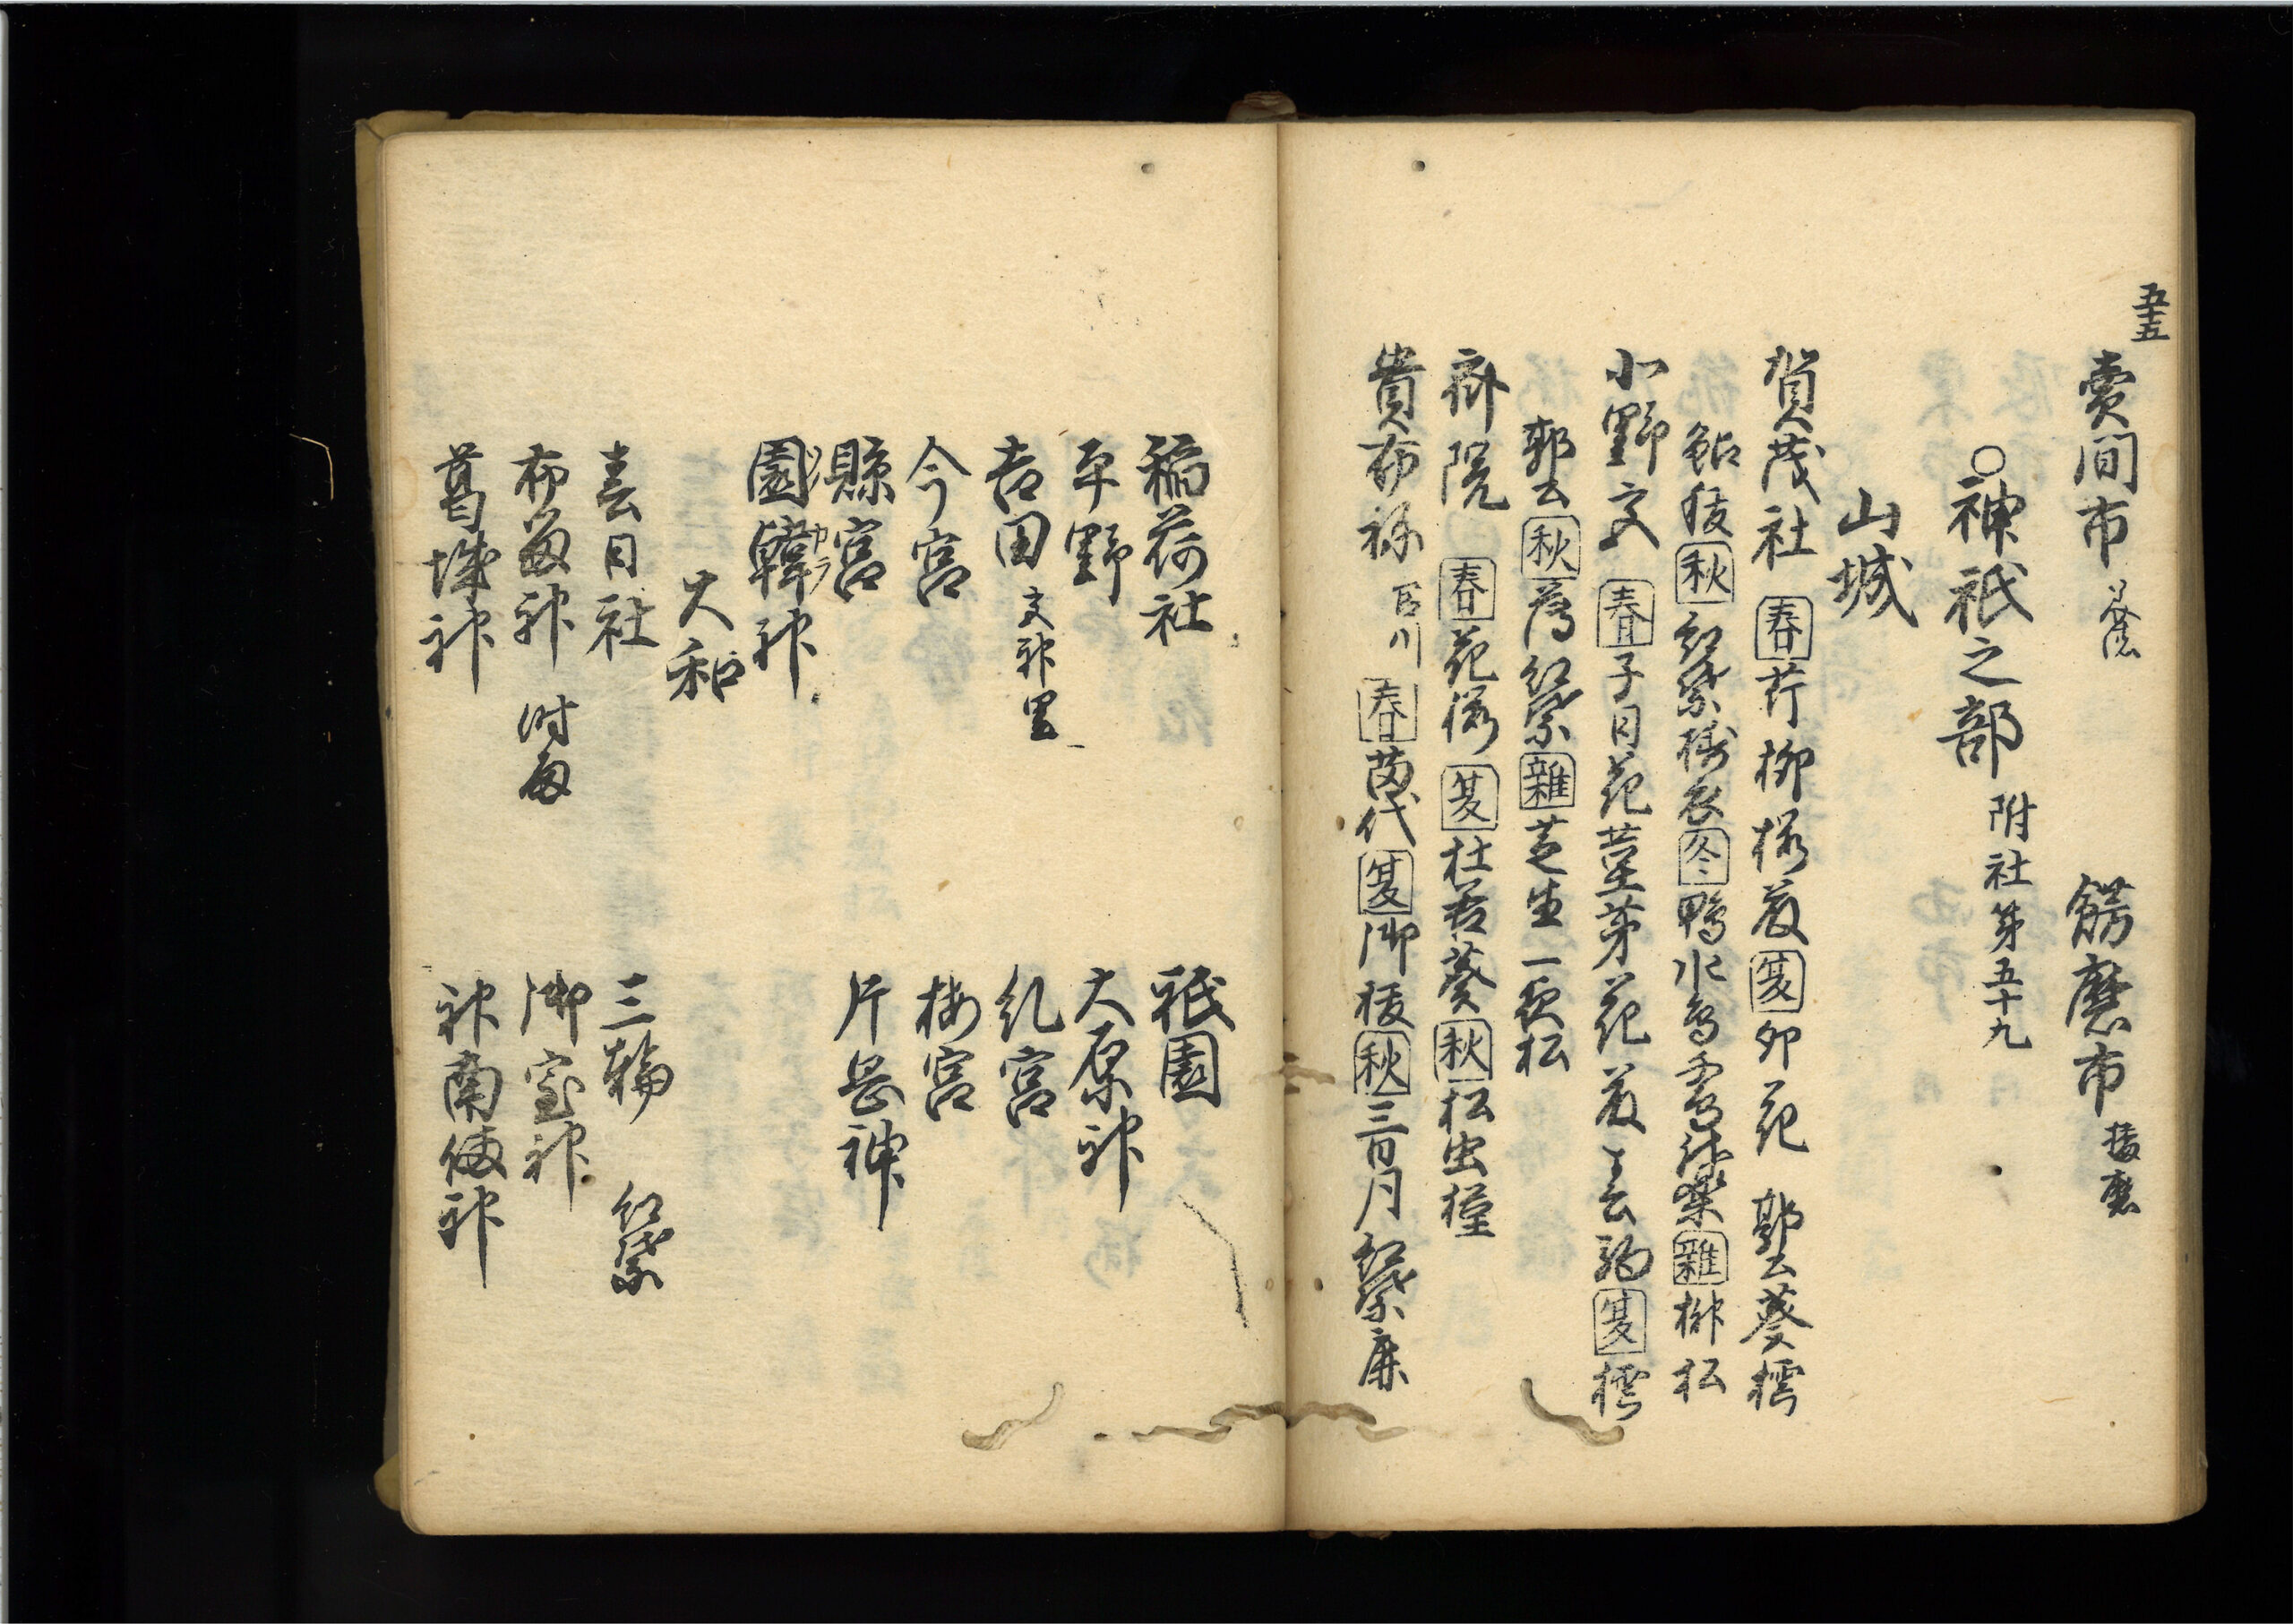 五十五
賣間市 餝磨市 播磨
○神祇之部 附社第五十九
山城
賀茂社 春 若柳桜藤 夏 卯花 郭公葵樗
鮎秡 秋 紅葉擣衣 冬 鴨水鳥雪神楽 雑 榊松
小野文 春 子日花菫茅花藤 夏 樗
郭公 秋 薄紅葉 雑 芝生一夜松
斎院 春 花桜 夏 杜若葵 秋 松虫槿
貴布祢 春 苗代 夏 御秡 秋 三日月紅葉鹿
稲荷社 祇園
平野 大原神
吉田 糺宮
今宮 梅宮
縣宮 片岳神
園韓神 ソノ カラ
大和
春日社 三輪 紅葉
布留神 時雨 御室神
葛城神 神南備神